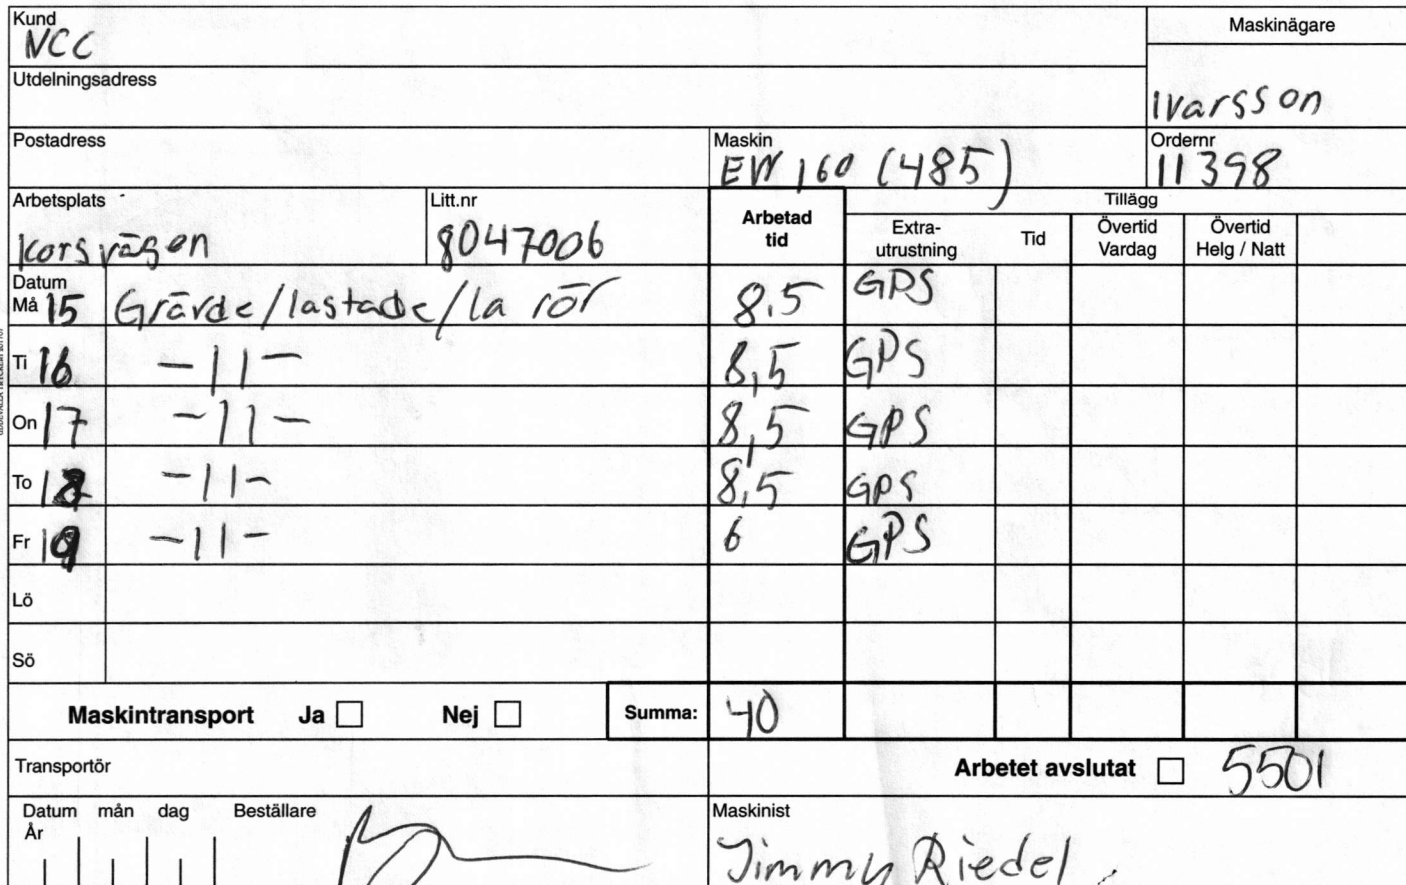 Kund
NCC
Maskinägare
Utdelningsadress
Ivarsson
Postadress
Maskin
EW 160 (485)
Ordernr
11398
Arbetsplats
Korsvägen
Litt.nr
8047006
Arbetad tid
Tillägg
Extra-utrustning
Tid
Övertid Vardag
Övertid Helg / Natt
Datum
Må 15 Grävde/lastade/la rör 8,5 GPS
Ti 16 -11- 8,5 GPS
On 17 -11- 8,5 GPS
To 18 -11- 8,5 GPS
Fr 19 -11- 6 GPS
Lö
Sö
Maskintransport Ja Nej Summa: 40
Transportör
Arbetet avslutat 5501
Datum mån dag Beställare
År
Maskinist
Jimmy Riedel